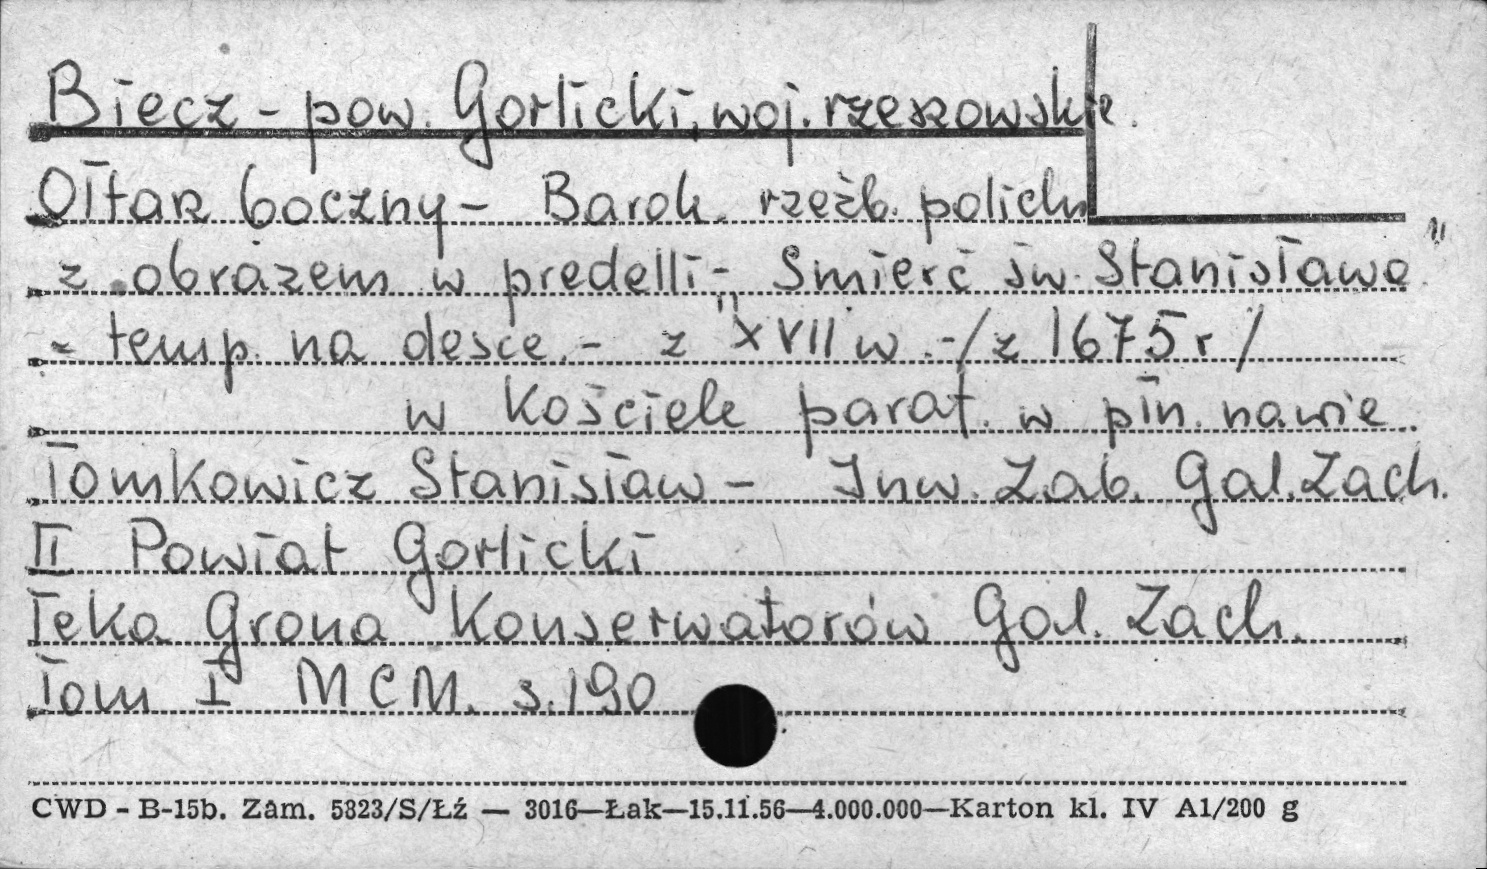 Biecz - pow. Gorlicki, woj. rzeszowskie.
Ołtarz boczny - Barok. rzeźb. polichr
z obrazem w predelli - "Śmierć św. Stanisława"
- temp. na desce. - z XVII w. - /z 1675 r/
w Kościele paraf. w płn. nawie.
Tomkowicz Stanisław - Inw. Zab. Gal. Zach.
II Powiat Gorlicki
Teka Grona Konserwatorów Gal. Zach.
Tom I MCM. s. 190
CWD - B-15b. Zam. 5823/S/Łź — 3016—Łak—15.11.56—4.000.000—Karton kl. IV A1/200 g